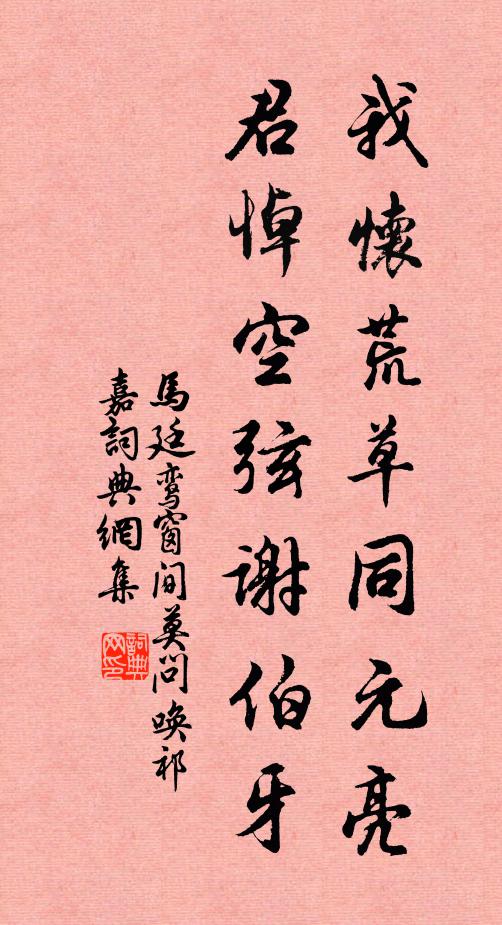 我懷荒草同元亮
君悼空弦謝伯牙
馬廷鸾窗间莫问唤祁
嘉詞典網集
詞典网印